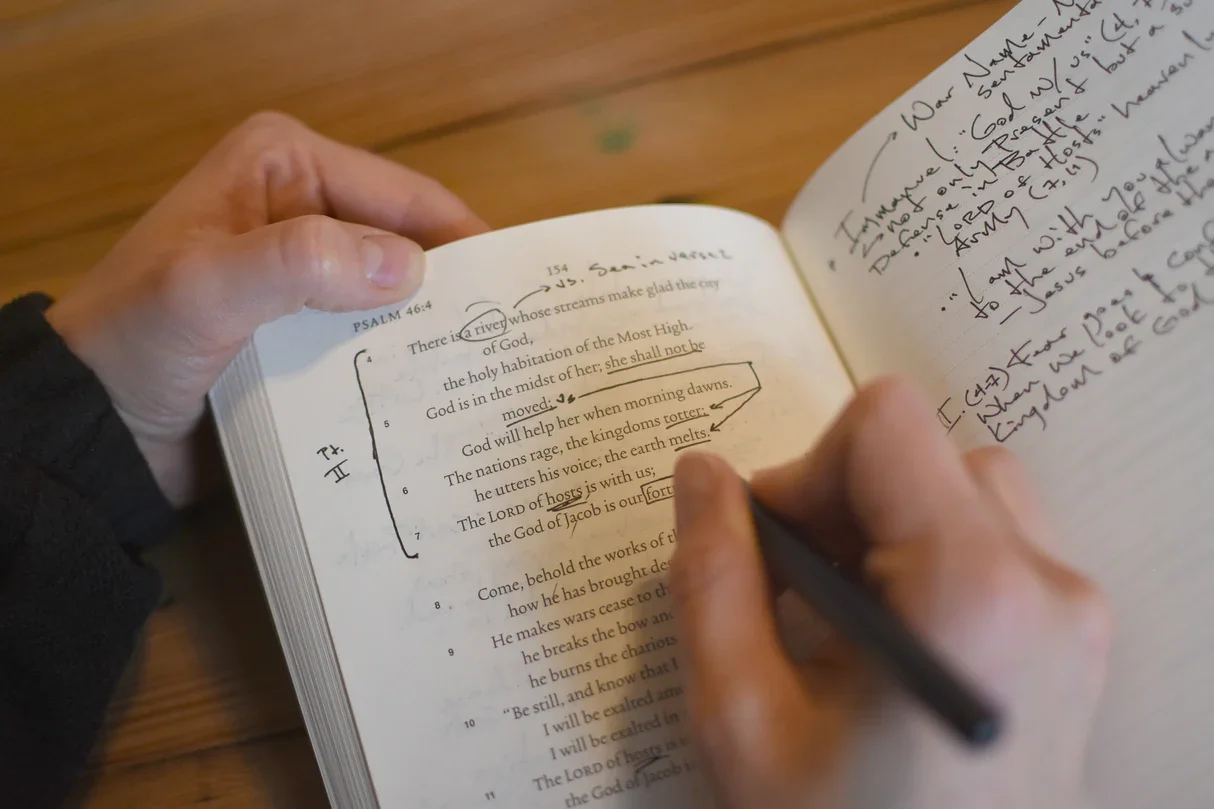 154
vs. Sea in verse 2
PSALM 46:4
4 There is a river whose streams make glad the city
of God,
the holy habitation of the Most High.
5 God is in the midst of her; she shall not be
moved; vs
God will help her when morning dawns.
6 The nations rage, the kingdoms totter;
he utters his voice, the earth melts.
7 The LORD of hosts is with us;
the God of Jacob is our
Pt.
II
8 Come, behold the works of
how he has brought
9 He makes wars cease to
he breaks the bow
he burns the chariots
10 “Be still, and know that I
I will be exalted
I will be exalted in
11 The LORD of hosts is
the God of Jacob is
War Name -
Immanuel: "God w/ us" (4,
is not only present but a
Defense in Battle
• "LORD of Hosts" heaven
Army (7, 11)
• "I am with you
to the end of the
- Jesus before the
II. (4-7) Fear goes &
when we look to
Kingdom of God